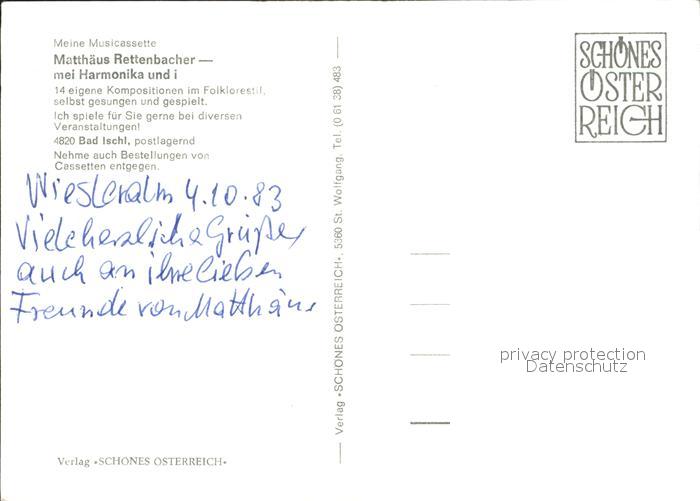 Meine Musicassette
Matthäus Rettenbacher —
mei Harmonika und i
14 eigene Kompositionen im Folklorestil,
selbst gesungen und gespielt.
Ich spiele für Sie gerne bei diversen
Veranstaltungen!
4820 Bad Ischl, postlagernd
Nehme auch Bestellungen von
Cassetten entgegen.
Wiesleralm 4.10.83
Viele herzliche Grüße
auch an ihre lieben
Freunde von Matthäus
Verlag »SCHÖNES ÖSTERREICH«
Verlag »SCHÖNES ÖSTERREICH«, 5360 St. Wolfgang, Tel. (0 61 38) 483
SCHÖNES
ÖSTER
REICH
privacy protection
Datenschutz